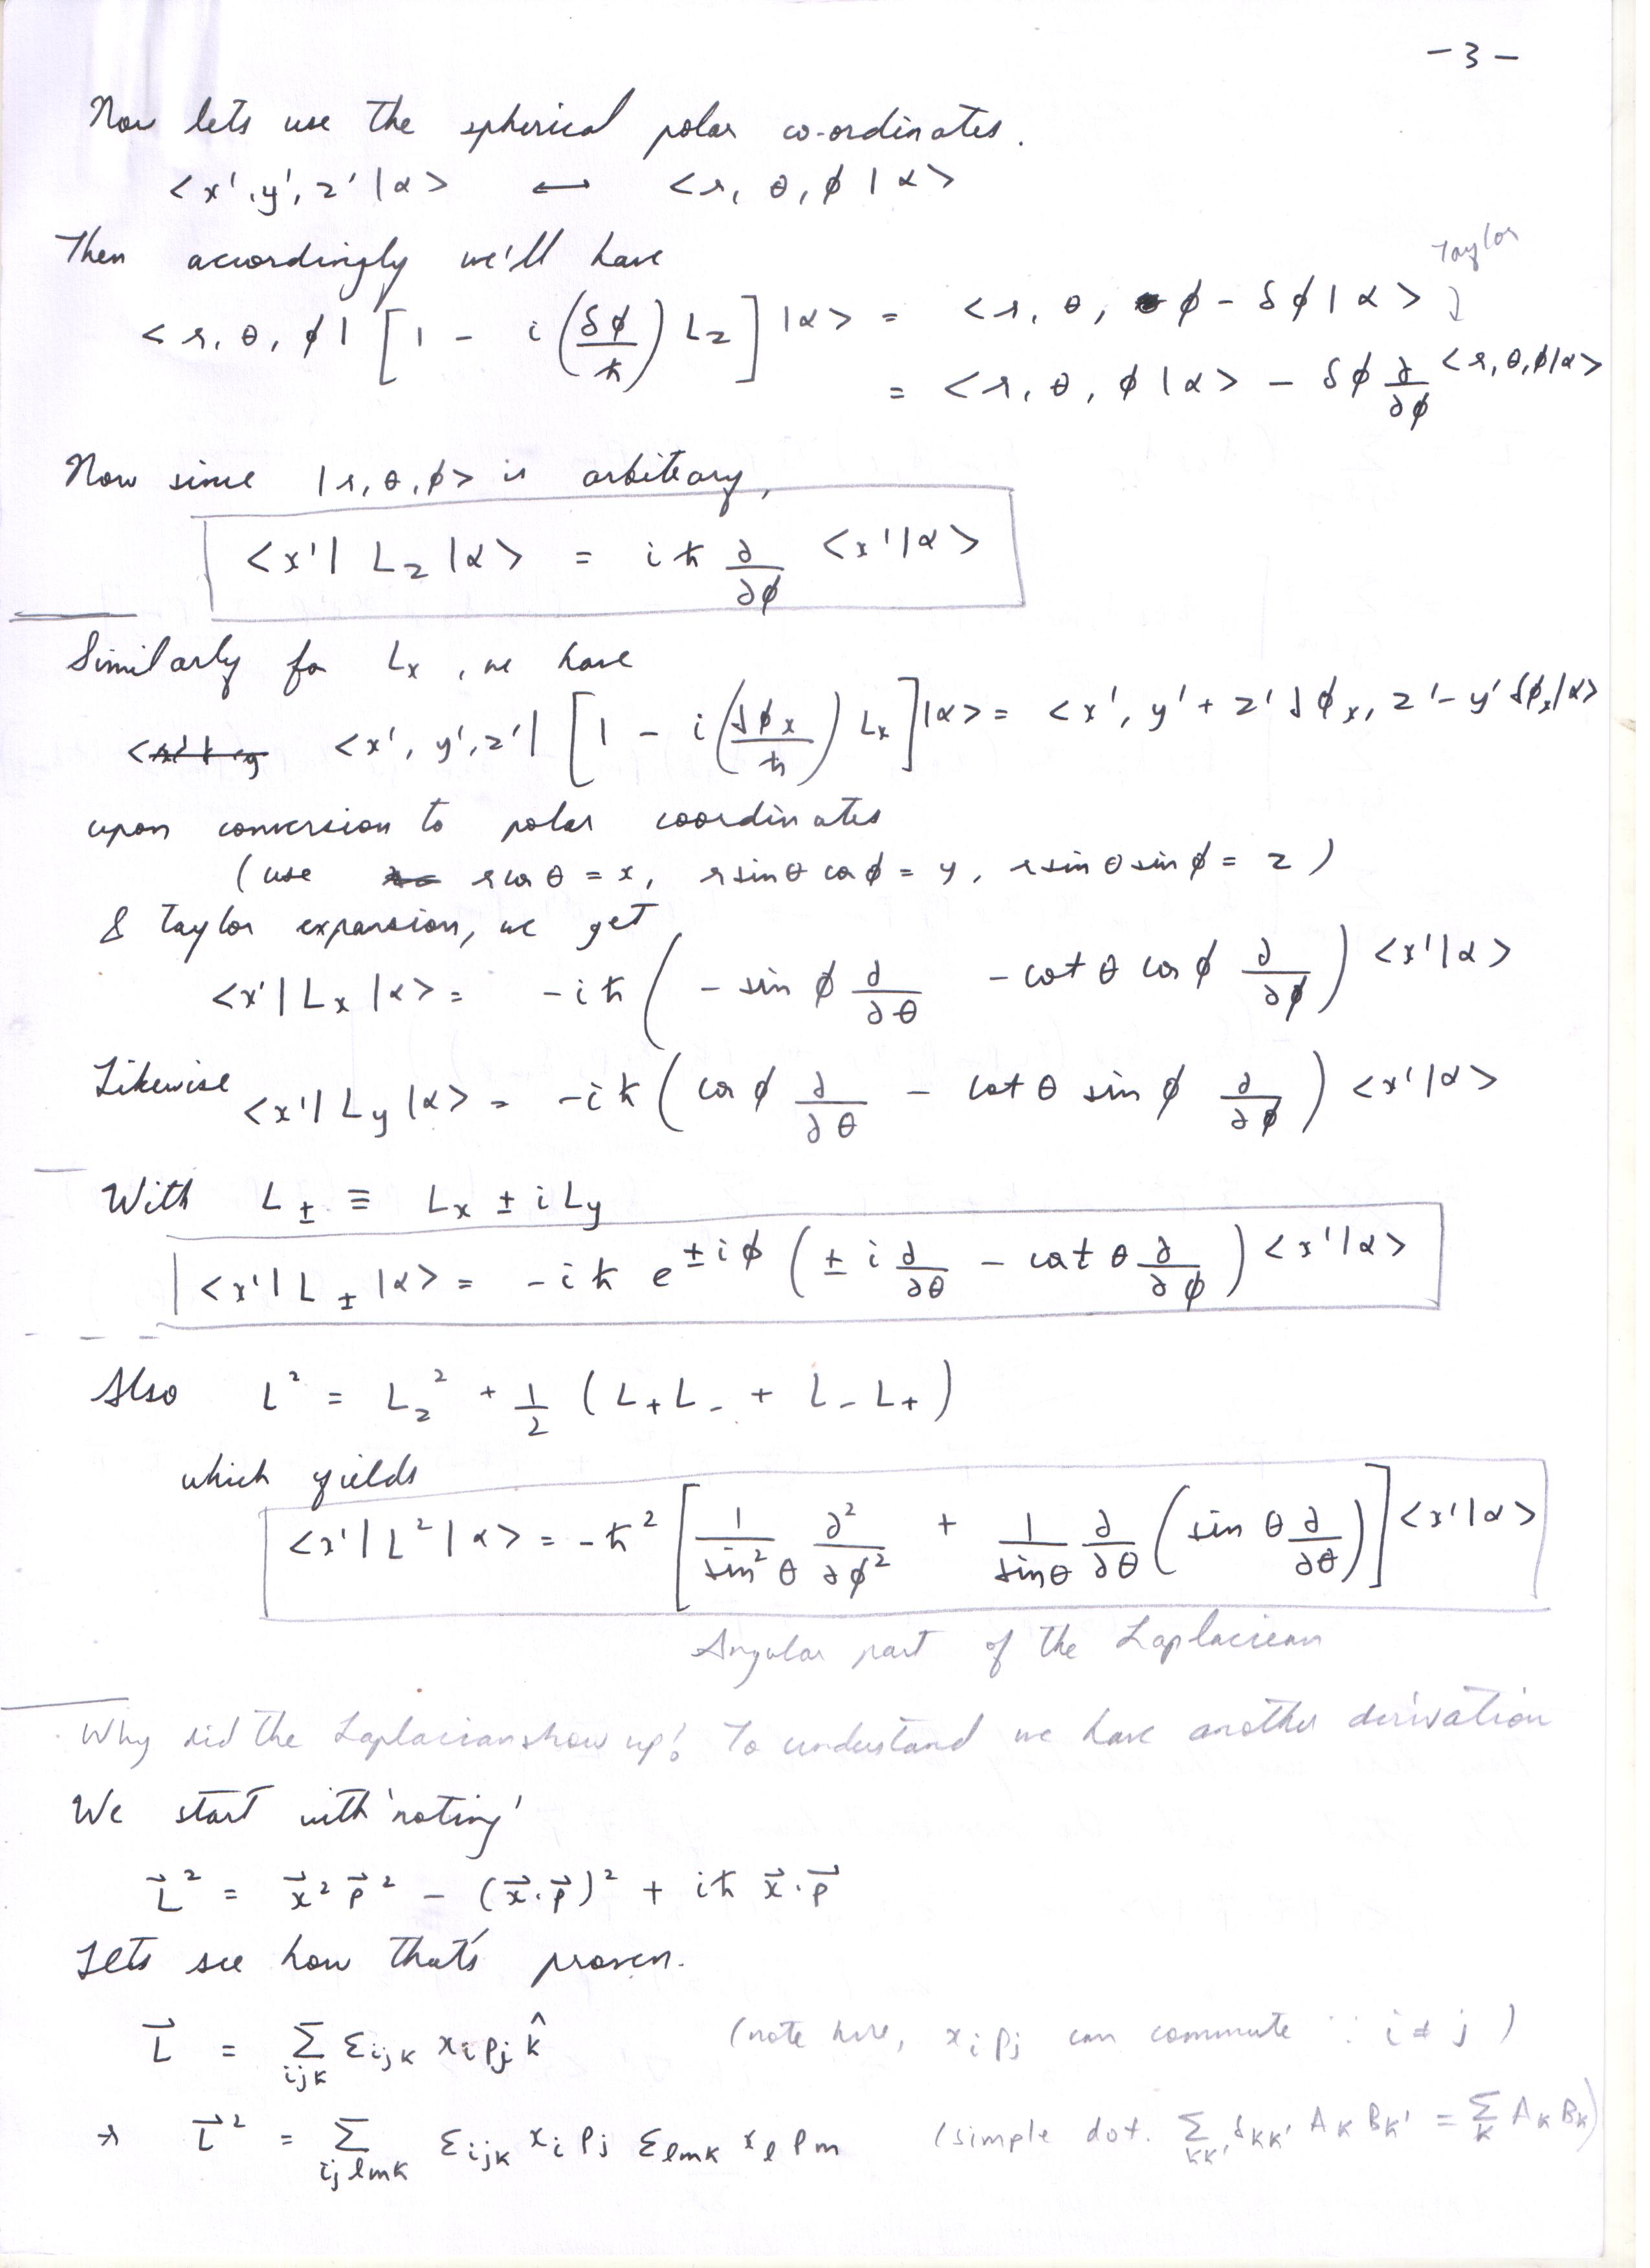 -3-
Now lets use the spherical polar co-ordinates.
<x', y', z' | α> ⟷ <r, θ, φ | α>
Then accordingly we'll have
<r, θ, φ| [1 - i (δφ/ħ) L_z] |α> = <r, θ, φ - δφ | α> Taylor
= <r, θ, φ | α> - δφ ∂/∂φ <r, θ, φ|α>
Now since |r, θ, φ> is arbiteary,
<x'| L_z |α> = iħ ∂/∂φ <x'|α>
Similarly for L_x, we have
<x', y', z'| [1 - i (δφ_x/ħ) L_x] |α> = <x', y' + z' δφ_x, z' - y' δφ_x|α>
upon conversion to polar coordinates
(use r cos θ = x, r sin θ cos φ = y, r sin θ sin φ = z)
& taylor expansion, we get
<x'| L_x |α> = -iħ (- sin φ ∂/∂θ - cot θ cos φ ∂/∂φ) <x'|α>
Likewise <x'| L_y |α> = -iħ (cos φ ∂/∂θ - cot θ sin φ ∂/∂φ) <x'|α>
With L_± ≡ L_x ± i L_y
<x'| L_± |α> = -iħ e^{±iφ} (± i ∂/∂θ - cot θ ∂/∂φ) <x'|α>
Also L² = L_z² + 1/2 (L_+ L_- + L_- L_+)
which yields
<x'| L² |α> = -ħ² [1/sin²θ ∂²/∂φ² + 1/sinθ ∂/∂θ (sin θ ∂/∂θ)] <x'|α>
Angular part of the Laplaciean
Why did the Laplacian show up! To understand we have another derivation
We start with 'noting'
L⃗² = x⃗² p⃗² - (x⃗·p⃗)² + iħ x⃗·p⃗
Lets see how that's proven.
L⃗ = Σ_{ijk} ε_{ijk} x_i p_j k̂ (note here, x_i p_j can commute ∵ i ≠ j)
⇒ L⃗² = Σ_{ijlmk} ε_{ijk} x_i p_j ε_{lmk} x_l p_m (simple dot. Σ_{kk'} δ_{kk'} A_k B_{k'} = Σ_k A_k B_k)